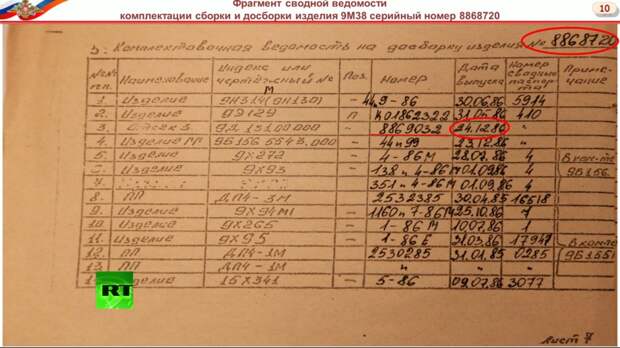 Фрагмент сводной ведомости
комплектации сборки и досборки изделия 9М38 серийный номер 8868720
10
3. Комплектовочная ведомость на досборку изделия № 8868720
№№ п.п. Наименование Индекс или чертежный № Поз. Номер Дата выпуска Номер сводно паспорта Приме-чание
М
1. Изделие 9Н314 (9Н130) — 44 9-86 30.06.86 5914
2. Изделие 9Э129 П К01862322 31.05.86 410
3. 9Д 131 00 000 — 8869032 24.12.86 "
4. Изделие 9Б156 — 44 п 99 23.12.86 "
5. Изделие 9Х272 — 4-86М 28.07.86 4 В ком-те
6. Изделие 9Х95 — 138 п 4-86М 01.09.86 4 9Б156
7. 351 п 4-86М 01.09.86 4
8. ПП ДП4-3М 2532385 30.04.85 16518
9. Изделие 9Х94М1 — 1160 п 7-86М 25.10.86 1
10. Изделие 9Х265 — 1-86М 10.07.86 1
11. Изделие 9Х95 — 1-86Е 31.03.86 17947 В комп
12. ПП ДП4-1М 2530285 31.01.85 0285 9Б1551
13. ПП ДП4-1М " " "
14 Изделие 15Х341 — 5-86 09.07.86 3077
RT
Лист 7